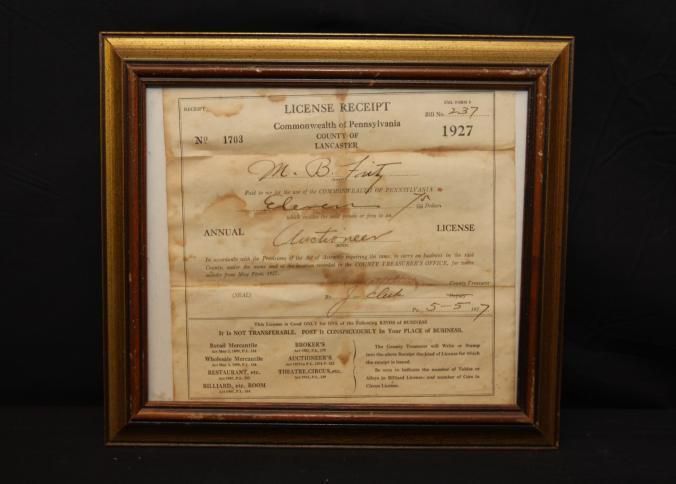 RECEIPT
LICENSE RECEIPT
Commonwealth of Pennsylvania
COUNTY OF
LANCASTER
Bill No. 237
1927
No 1703
M. B. Fritz
Paid to me for the use of the COMMONWEALTH OF PENNSYLVANIA
Eleven 75 Dollars
which entitles the said person or firm to an
ANNUAL Auctioneer LICENSE
In accordance with the Provisions of the Act of Assembly requiring the same, to carry on business in the said
County, under the name and at the location recorded in the COUNTY TREASURER'S OFFICE, for twelve
months from May First, 1927.
County Treasurer
(SEAL)
Clerk
5-5 1927
This License is Good ONLY for ONE of the Following KINDS OF BUSINESS
It Is NOT TRANSFERABLE. POST It CONSPICUOUSLY In YOUR PLACE OF BUSINESS.
Retail Mercantile
Wholesale Mercantile
RESTAURANT, etc.
BILLIARD, etc. ROOM
BROKER'S
AUCTIONEER'S
THEATRE, CIRCUS, etc.
The County Treasurer will Write or Stamp
into the above Receipt the kind of License for which
the receipt is issued.
Be sure to indicate the number of Tables or
Alleys in Billiard License; and number of Cars in
Circus License.